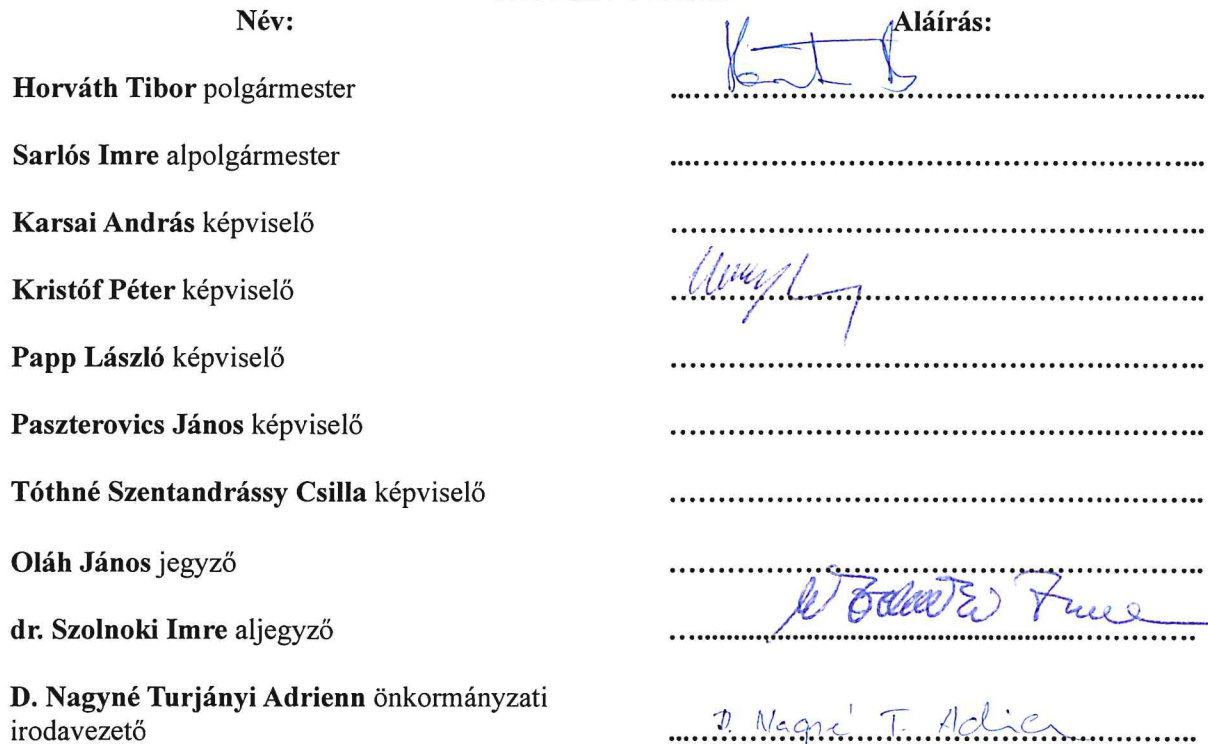 Név: Aláírás:
Horváth Tibor polgármester
Sarlós Imre alpolgármester
Karsai András képviselő
Kristóf Péter képviselő
Papp László képviselő
Paszterovics János képviselő
Tóthné Szentandrássy Csilla képviselő
Oláh János jegyző
dr. Szolnoki Imre aljegyző
D. Nagyné Turjányi Adrienn önkormányzati
irodavezető D. Nagyné T. Adrienn